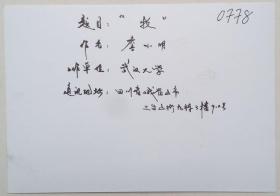 0778
题目："牧"
作者：李小明
工作单位：武汉大学
通讯地址：四川省峨眉山市